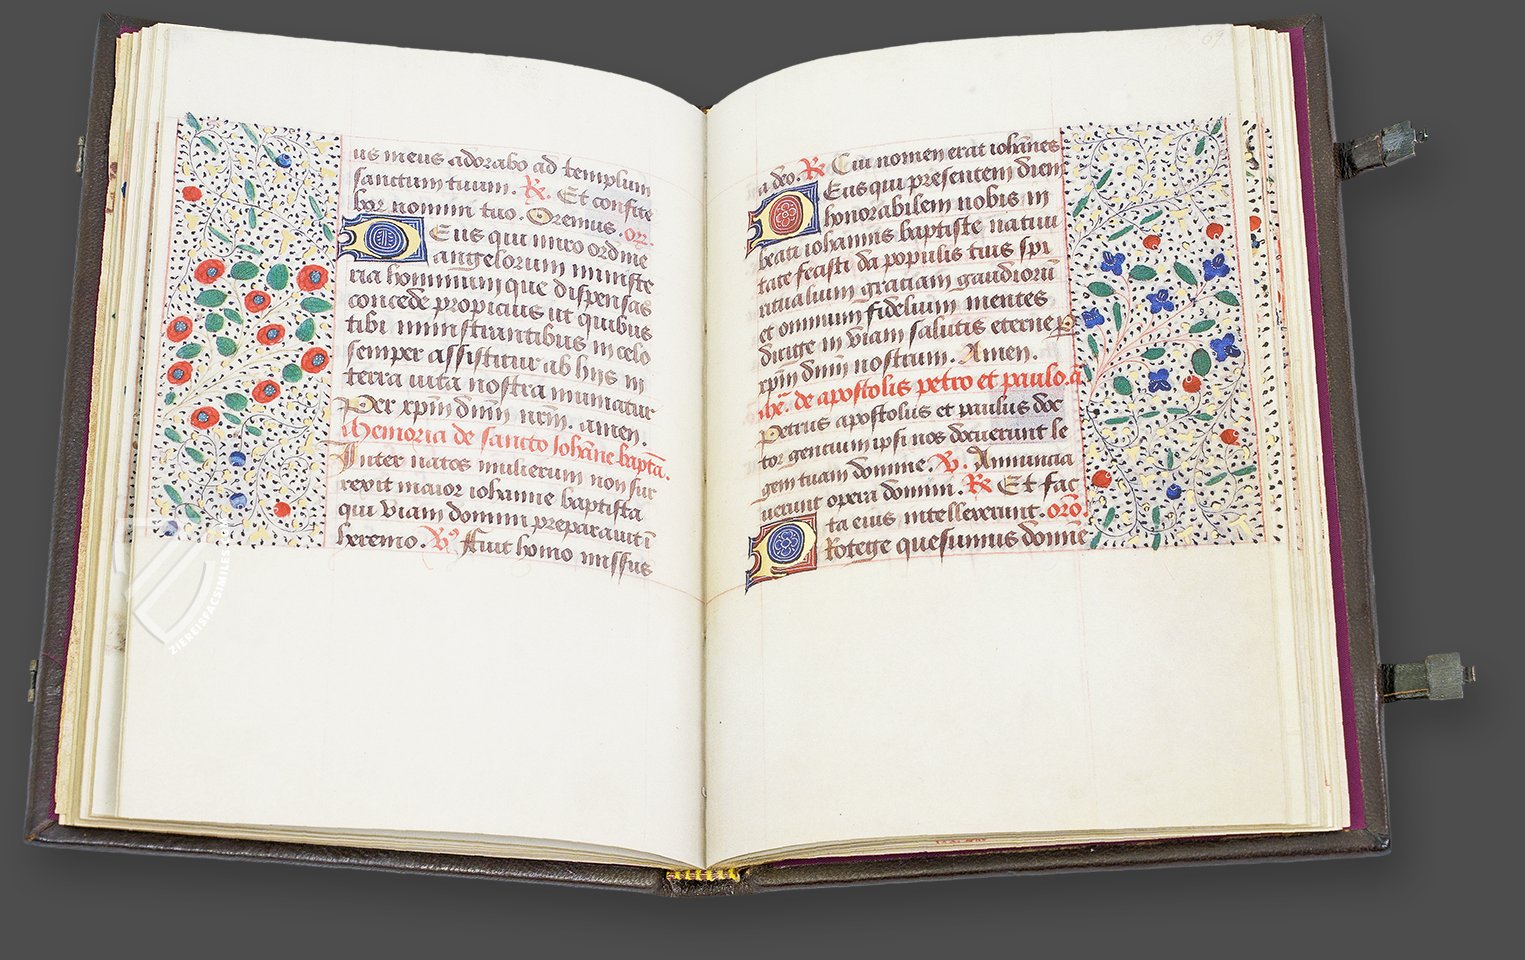 us meus adorabo ad templum
sanctum tuum. ℟. Et confite
bor nomini tuo. Oremus. or̄.
Deus qui miro ordine
angelorum ministe
ria hominum que dispensas
concede propicius ut quibus
tibi ministrantibus in celo
semper assistitur ab hijs in
terra vita nostra muniatur
Per xp̄m dn̄m nr̄m. amen.
Memoria de sancto Ioh̄ane baptā.
Inter natos mulierum non sur
rexit maior iohanne baptista
qui viam domini preparavit ī
heremo. ℣. Fuit homo missus
69
a deo. ℟ Cui nomen erat ioh̄anes
Deus qui presentem diem
honorabilem nobis in
beati iohannis baptiste nativi
tate fecisti da populis tuis spi
ritualium gratiam gaudiorū
et omnium fidelium mentes
dirige in viam salutis eterne p
xp̄m dn̄m nostrum. Amen.
de apostolis petro et paulo. ā
Petrus apostolus et paulus doc
tor gencium ipsi nos docuerunt le
gem tuam domine. ℣. Annuncia
uerunt opera domini. ℟ Et fac
ta eius intellexerunt. orō.
Protege quesumus domine
ZIEREIS FACSIMILES